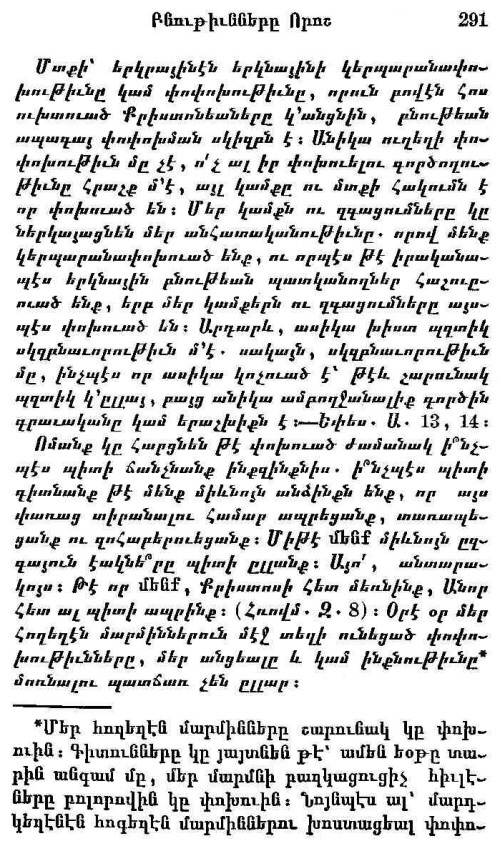 Բնութիւնները Որոշ 291
Մտքի՝ երկրայինէն երկնայինի կերպարանափո-
խութիւնը կամ փոփոխութիւնը, որուն բովէն հոս
ուխտուած Քրիստոնեաները կ՚անցնին, բնութեան
ապագայ փոփոխման սկիզբն է։ Անիկա ուղեղի փո-
փոխութիւն մը չէ, ո՛չ ալ իր փոխուելու գործողու-
թիւնը հրաշք մ՚է, այլ կամքը ու մտքի հակումն է
որ փոխուած են։ Մեր կամքն ու զգացումները կը
ներկայացնեն մեր անհատականութիւնը. որով մենք
կերպարանափոխուած ենք, ու որպէս թէ իրականա-
պէս երկնային բնութեան պատկանողներ հաշուը-
ուած ենք, երբ մեր կամքերն ու զգացումները այս-
պէս փոխուած են։ Արդարև, ասիկա խիստ պզտիկ
սկզբնաւորութիւն մ՚է. սակայն, սկզբնաւորութիւն
մը, ինչպէս որ ասիկա կոչուած է՝ թէև շարունակ
պզտիկ կ՚ըլլայ, բայց անիկա ամբողջանալիք գործին
գրաւականը կամ երաշխիքն է։—Եփես. Ա. 13, 14։
Ոմանք կը հարցնեն թէ փոխուած ժամանակ ի՞նչ-
պէս պիտի ճանչնանք ինքզինքնիս. ի՞նչպէս պիտի
գիտնանք թէ մենք միևնոյն անձինքն ենք, որ այս
փառաց տիրանալու համար ապրեցանք, տառապե-
ցանք ու զոհաբերուեցանք։ Միթէ մենք միևնոյն ըզ-
գայուն էակնե՞րը պիտի ըլլանք։ Այո՛, անտարա-
կոյս։ Թէ որ մենք, Քրիստոսի հետ մեռնինք, Անոր
հետ ալ պիտի ապրինք։ (Հռովմ. Զ. 8)։ Օրէ օր մեր
հողեղէն մարմիններուն մէջ տեղի ունեցած փոփո-
խութիւնները, մեր անցեալը և կամ ինքնութիւնը*
մոռնալու պատճառ չեն ըլլար։
*Մեր հողեղէն մարմինները շարունակ կը փոխ-
ուին։ Գիտունները կը յայտնեն թէ՝ ամեն եօթը տա-
րին անգամ մը, մեր մարմնի բաղկացուցիչ հիւլէ-
ները բոլորովին կը փոխուին։ Նոյնպէս ալ՝ մարդ-
կեղէնէն հոգեղէն մարմիններու խոստացեալ փոփո-